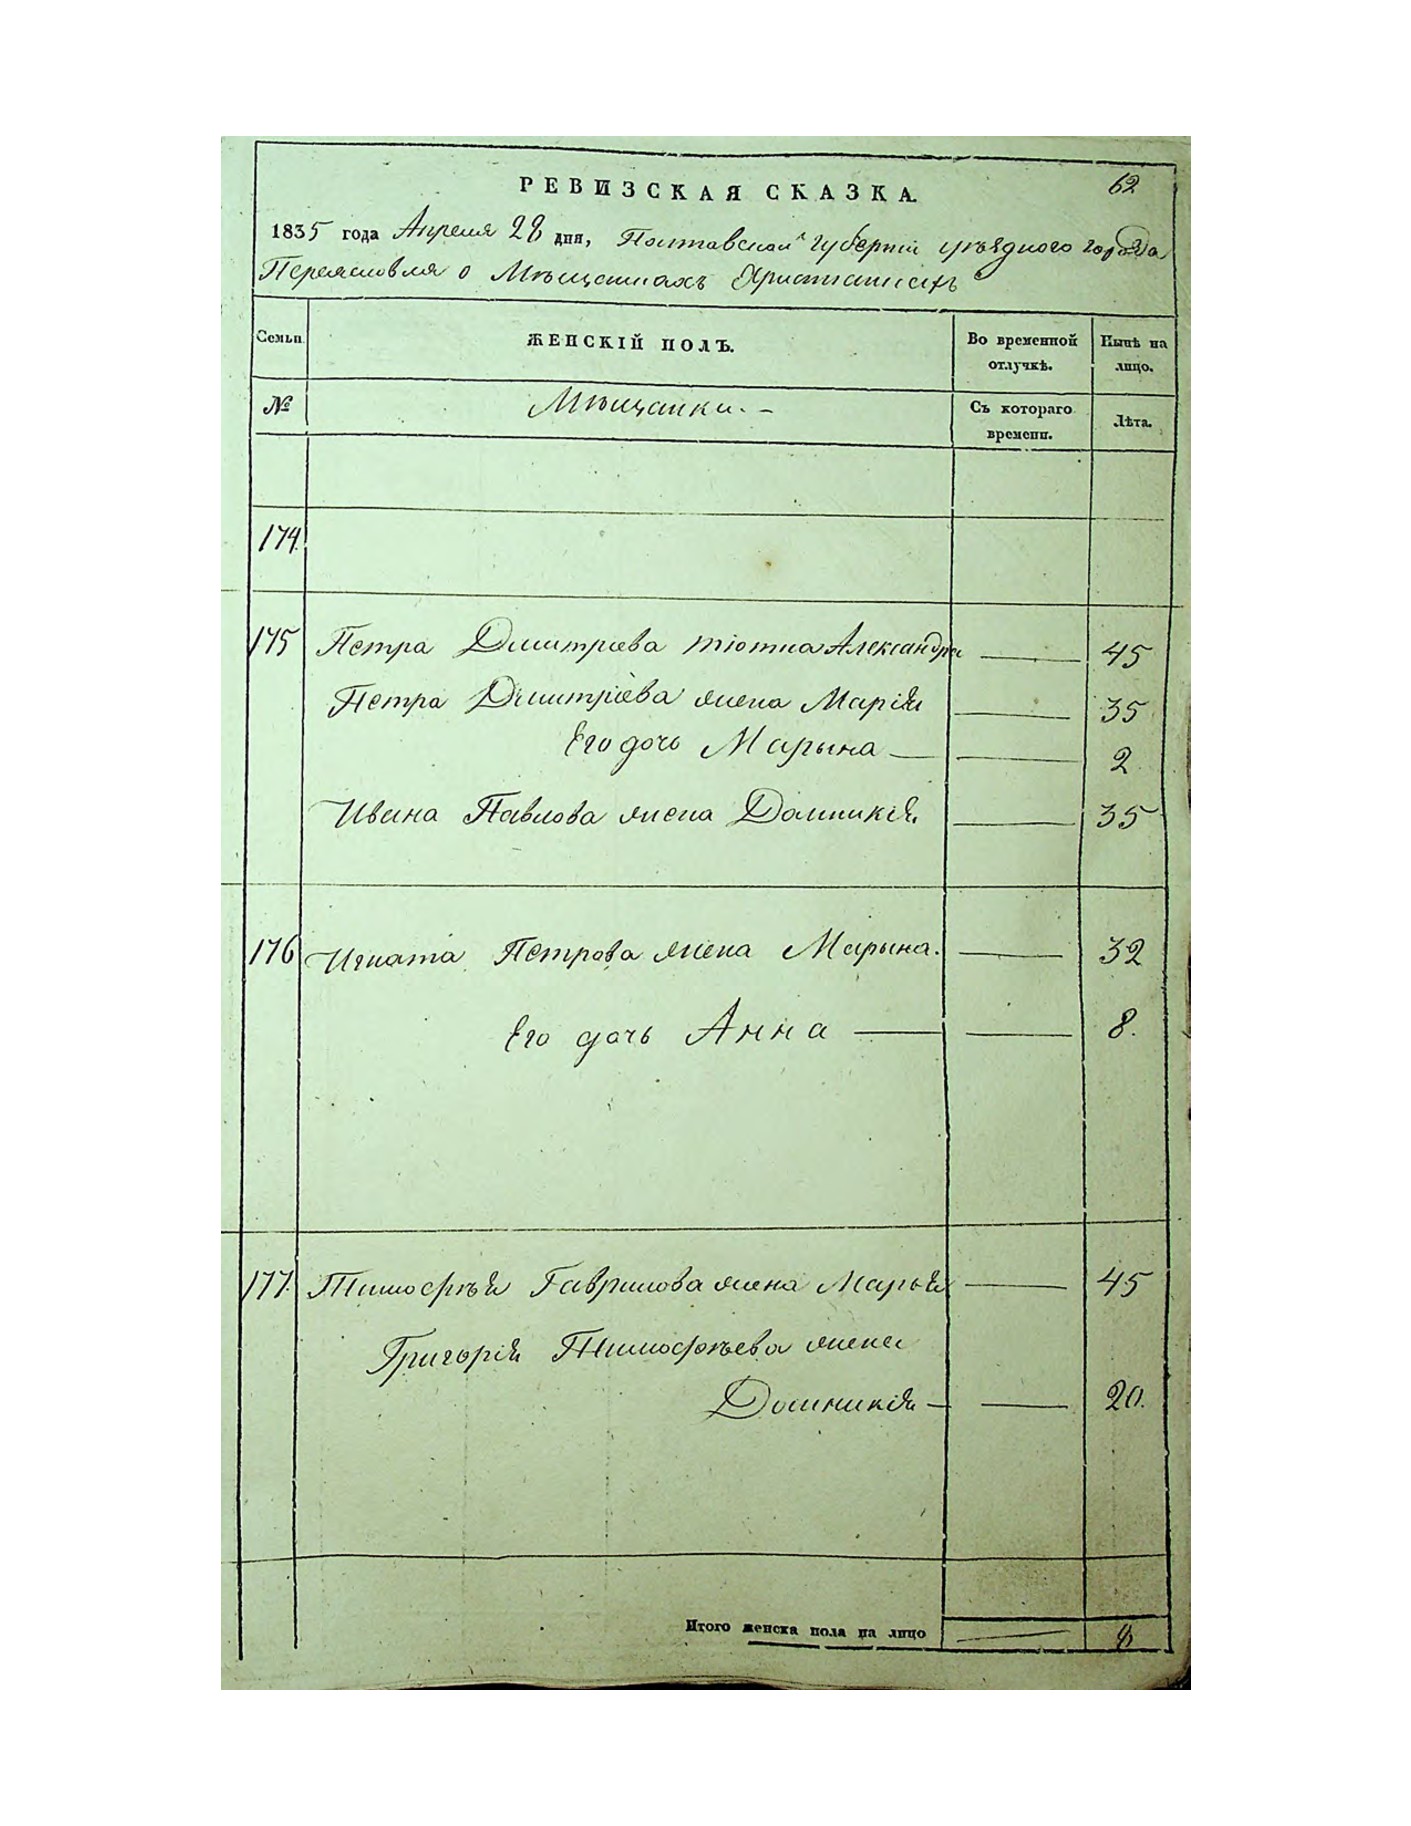 62
РЕВИЗСКАЯ СКАЗКА.
1835 года Апреля 28 дня, Полтавской Губерніи уѣзднаго города
Переяславля о Мѣщанахъ Христианахъ
Семьи. ЖЕНСКІЙ ПОЛЪ. Во временной отлучкѣ. Нынѣ на лицо.
№ Мѣщанки. – Съ котораго времени. Лѣта.
174.
175 Петра Дмитріева тіотка Александра — 45
Петра Дмитріева жена Марія — 35
Его дочь Марына — — 2
Ивана Павлова жена Домникія. — 35
176 Игната Петрова жена Марына. — 32
Его дочь Анна — — 8.
177. Тимофѣя Гаврилова жена Марья — 45
Григорія Тимофѣева жена
Домникія — — 20.
Итого женска пола на лицо — 8